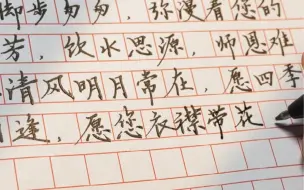 脚步匆匆，弥漫着您的
芳，饮水思源，师恩难
清风明月常在，愿四季
逢，愿您衣襟带花